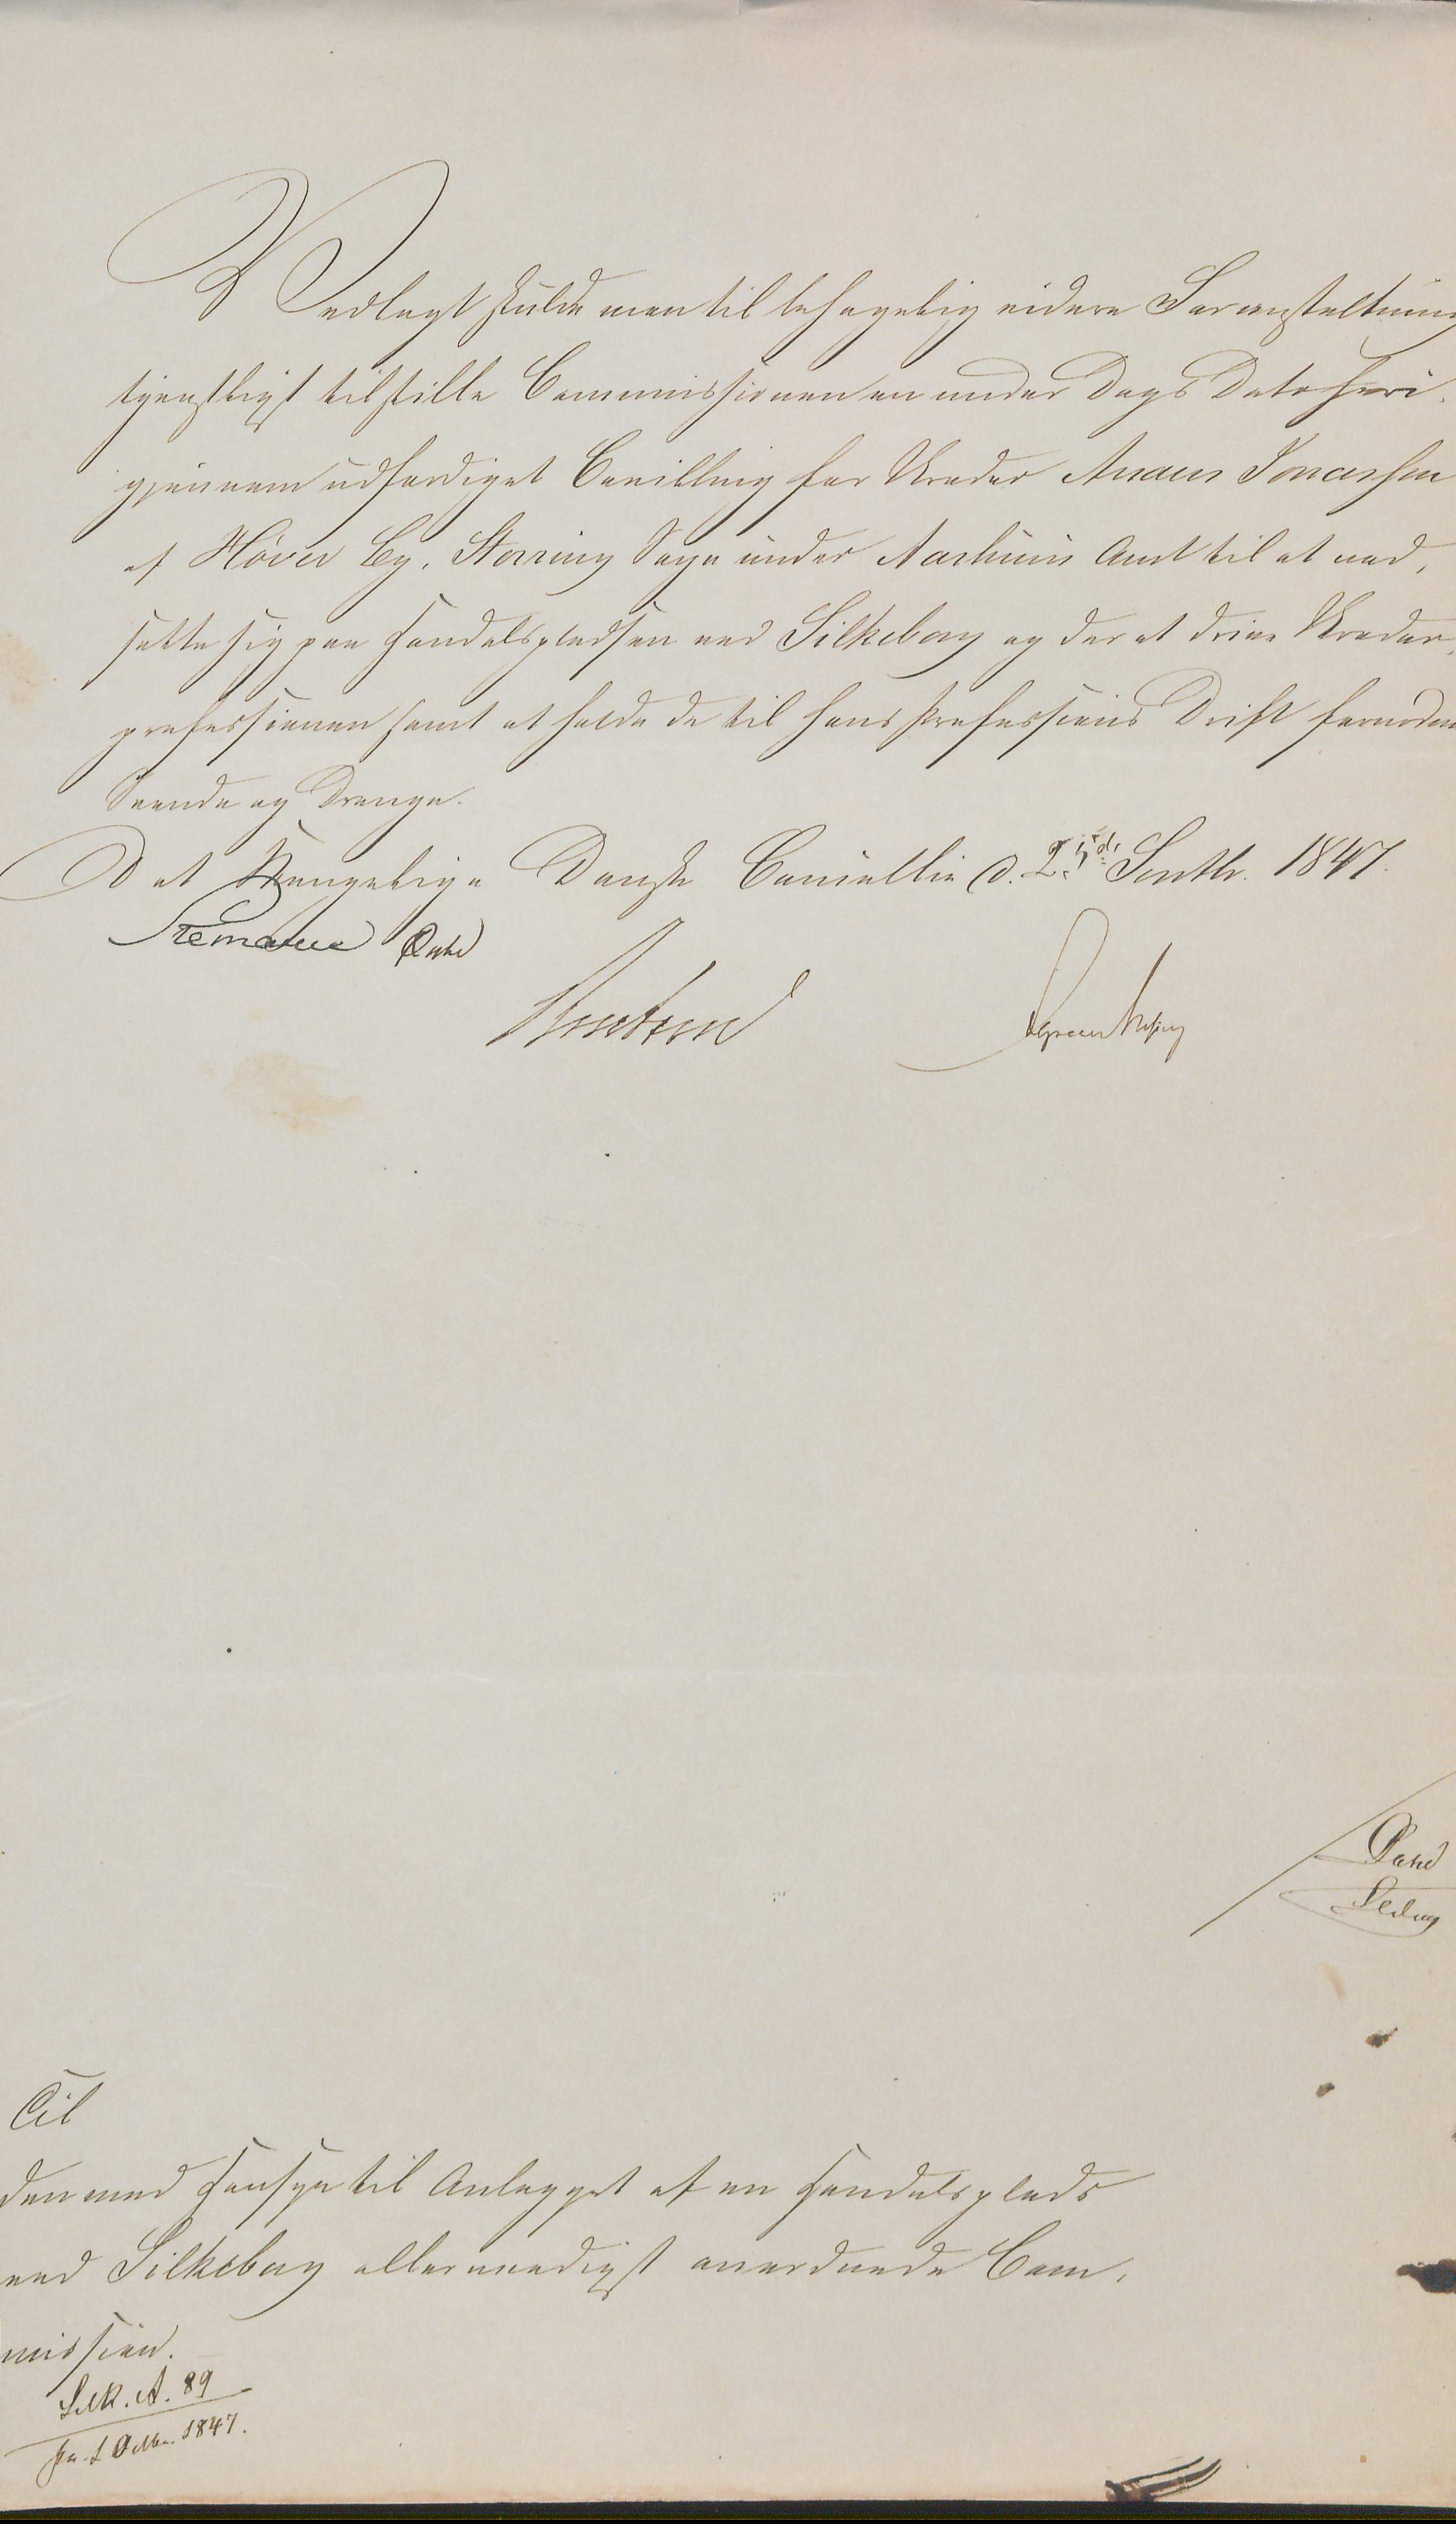 Vedlagt skulde man til behagelig videre Foranstaltning
tjenstligst tilstille Commissionen en under Dags Dato heri,
gjennem udfærdiget Bevilling for Skræder Anders Jonassen
af Høver By, Storring Sogn under Aarhuus Amt til at ned,
sætte sig paa Handelspladsen ved Silkeborg og der at drive Skræder,
professionen samt at holde de til hans Professions Drift fornødne
Svende og Drenge.
Det Kongelige Danske Cancellie d. 25de Septbr. 1847.
Stemann Ørsted
Til
den med Hensyn til Anlægget af en Handelsplads
ved Silkeborg allernaadigst anordnede Com,
mission.
Silk. A. 89
Pr. 1 Octbr. 1847.